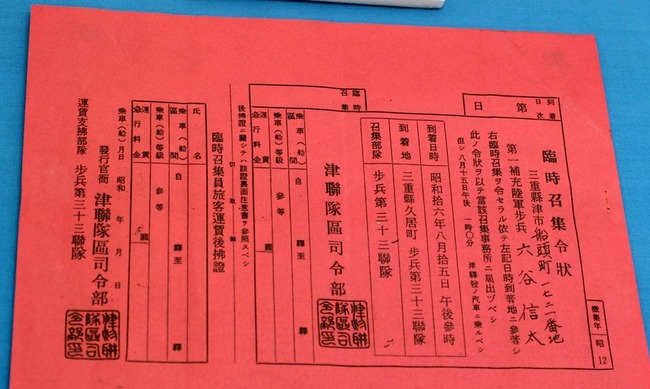 到着
日次
第 日
臨時召集令狀
三重縣津市船頭町一七二一番地
第一補充陸軍步兵 六谷信太
右臨時召集ヲ令セラル依テ左記日時到著地ニ參著シ
此ノ令狀ヲ以テ當該召集事務所ニ屆出ヅベシ
但シ八月十五日午後一時〇分 津驛發ノ汽車ニ乘ルベシ
到着日時 昭和拾六年八月拾五日 午後參時
到着地 三重縣久居町 步兵第三十三聯隊
召集部隊 步兵第三十三聯隊
津聯隊區司令部
徵集年 昭12
臨時
召集
乘車(船)區間 自 驛至 驛
乘車(船)等級 參等
運賃
急行料金 圓
後拂證ニ關シテハ該證裏面注意書ヲ參照スベシ
切取線
臨時召集員旅客運賃後拂證
氏名
乘車(船)區間 自 驛至 驛
乘車(船)等級 參等
運賃
急行料金 圓
乘車(船)月日 昭和 年 月 日
發行官衙 津聯隊區司令部
運賃支拂部隊 步兵第三十三聯隊